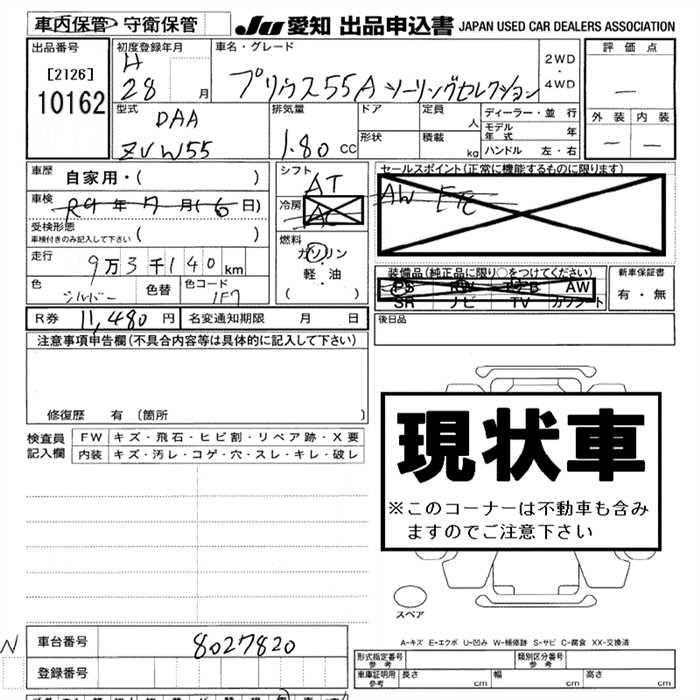 車内保管 守衛保管 JU 愛知 出品申込書 JAPAN USED CAR DEALERS ASSOCIATION
出品番号 初度登録年月 車名・グレード 評価点
[2126] H 2WD
10162 28 月 プリウス55A ツーリングセレクション ・ 4WD —
型式 DAA 排気量 ドア 定員 人 ディーラー・並行 外装 内装
モデル年式 年
ZVW55 1.80 cc 形状 積載 kg ハンドル 左・右 — —
車歴 自家用・( ) シフト AT セールスポイント(正常に機能するものに限ります)
車検 R9年7月(6日) 冷房 AC AW ETC
受検形態 ( )
車検付きのみ記入して下さい
燃料 ガソリン
走行 9万3千140km ・軽・油 装備品(純正品に限り○をつけてください) 新車保証書
色 シルバー 色替 色コード 1F7 ( ) PS PW エアB AW 有・無
SR ナビ TV カワシート
R券 11,480円 名変通知期限 月 日 後日品
注意事項申告欄(不具合内容等は具体的に記入して下さい)
修復歴 有 〔箇所 〕
現状車
検査員 FW キズ・飛石・ヒビ割・リペア跡・X要
記入欄 内装 キズ・汚レ・コゲ・穴・スレ・キレ・破レ
※このコーナーは不動車も含み
ますのでご注意下さい
スペア
車台番号 8027820
A-キズ E-エクボ U-凹み W-補修跡 S-サビ C-腐食 XX-交換済
登録番号
形式指定番号 参考 類別区分番号 参考
車庫証明用 参考 長さ cm 幅 cm 高さ cm